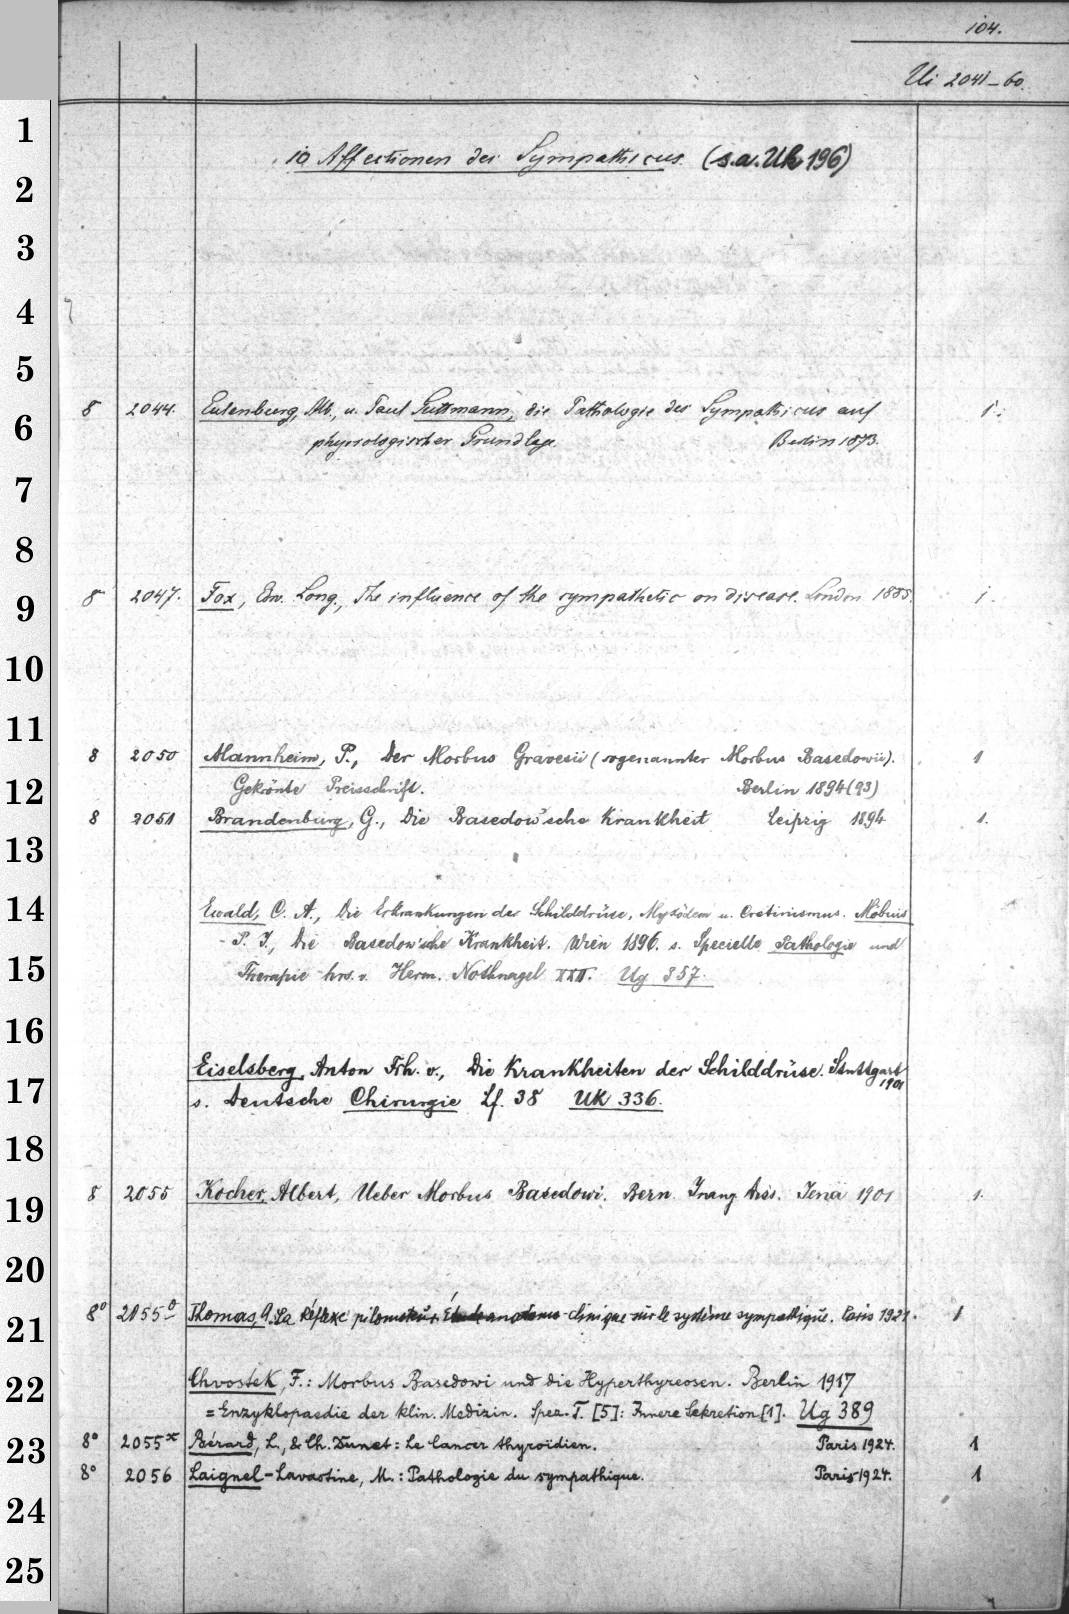 104.
Ui 2041-60.
1
10 Affectionen des Sympathicus. (s.a. Uk 196)
2
3
4
5
8 2044. Eulenburg, Alb., u. Paul Guttmann, die Pathologie des Sympathicus auf 1.
6
physiologischer Grundlage. Berlin 1873.
7
8
8 2047. Fox, Edw. Long., The influence of the sympathetic on disease. London 1885. 1.
9
10
11
8 2050 Mannheim, P., Der Morbus Gravesii (sogenannter Morbus Basedowii). 1
12
Gekrönte Preisschrift. Berlin 1894(93)
8 2051 Brandenburg, G., Die Basedow'sche Krankheit Leipzig 1894 1.
13
14
Ewald, C. A., Die Erkrankungen der Schilddrüse, Myxödem u. Cretinismus. Möbius
P. J., Die Basedow'sche Krankheit. Wien 1896. s. Specielle Pathologie und
15
Therapie hrs. v. Herm. Nothnagel XXII. Ug 357.
16
Eiselsberg, Anton Frh. v., Die Krankheiten der Schilddrüse. Stuttgart
1901
17
s. Deutsche Chirurgie Lf. 38 Uk 336.
18
8 2055 Kocher, Albert, Ueber Morbus Basedowi. Bern. Inaug. Diss. Jena 1901 1.
19
20
8° 2055° Thomas, A. La Réflexe pilomoteur. Étude anatomo-clinique sur le système sympathique. Paris 1921. 1
21
22
Chvostek, F.: Morbus Basedowi und die Hyperthyreosen. Berlin 1917
= Enzyklopaedie der klin. Medizin. Spez. T. [5]: Innere Sekretion [1]. Ug 389
23
8° 2055x Bérard, L., & Ch. Dunet: Le Cancer thyroïdien. Paris 1924. 1
8° 2056 Laignel-Lavastine, M.: Pathologie du sympathique. Paris 1924. 1
24
25